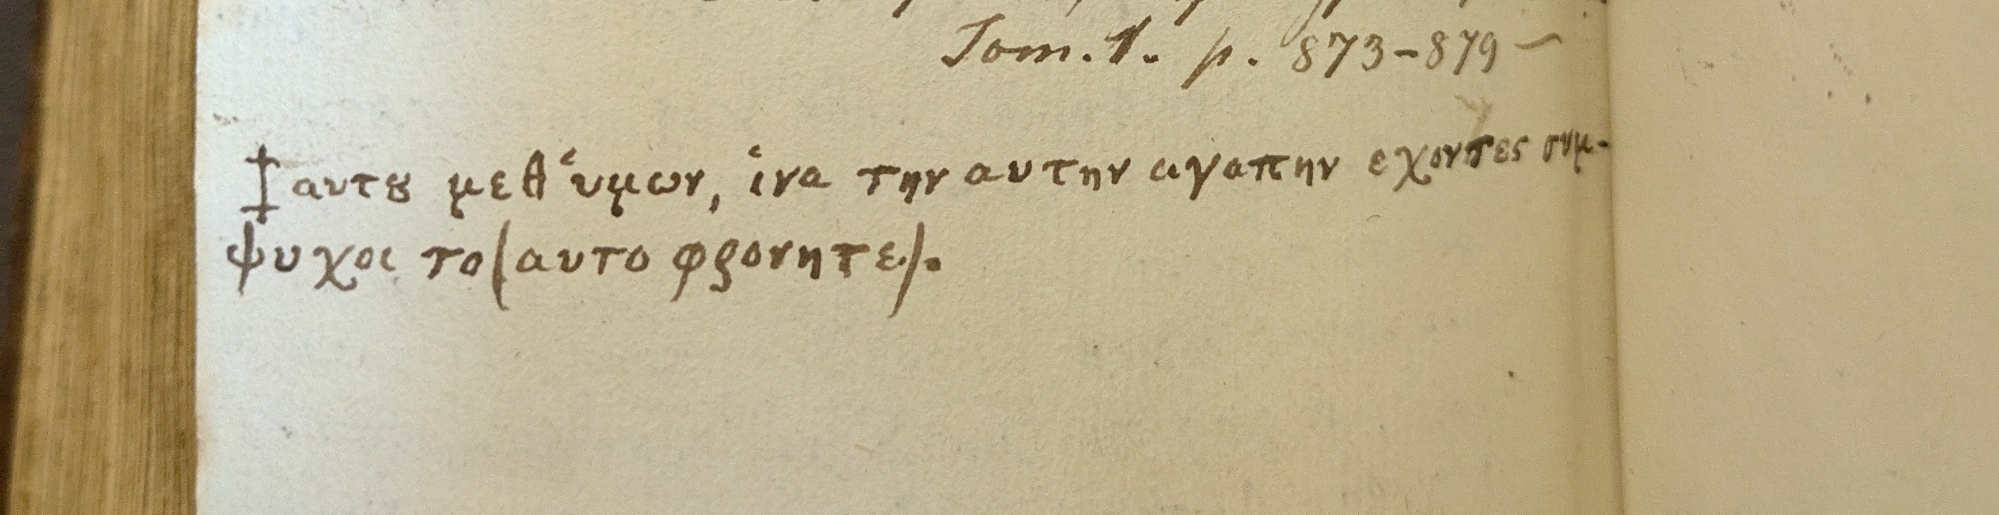 Tom. 1. p. 873-879
‡ αυτȣ μεθ ὑμων, ἱνα την αυτην αγαπην εχοντες συμ-
ψυχοι το (αυτο φρονητε).